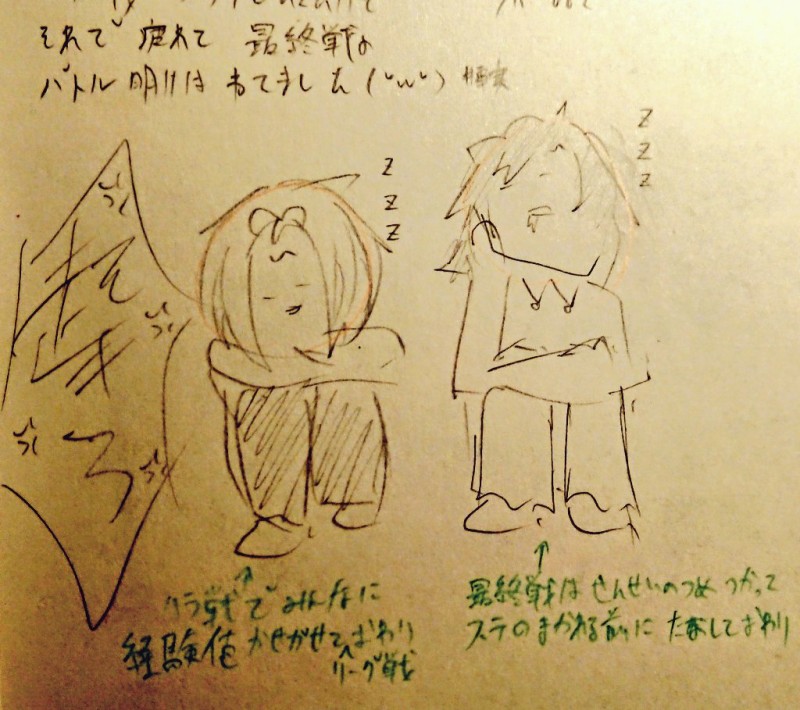 それで 疲れて 最終戦の
バトル明けは ねてました
z
z
z
z
z
z
起きろ
クラ戦で みんなに
経験値 かせがせて おわり
リーグ戦
最終戦は せんせいのつめ つかって
ステの まかれる前に たおして おわり